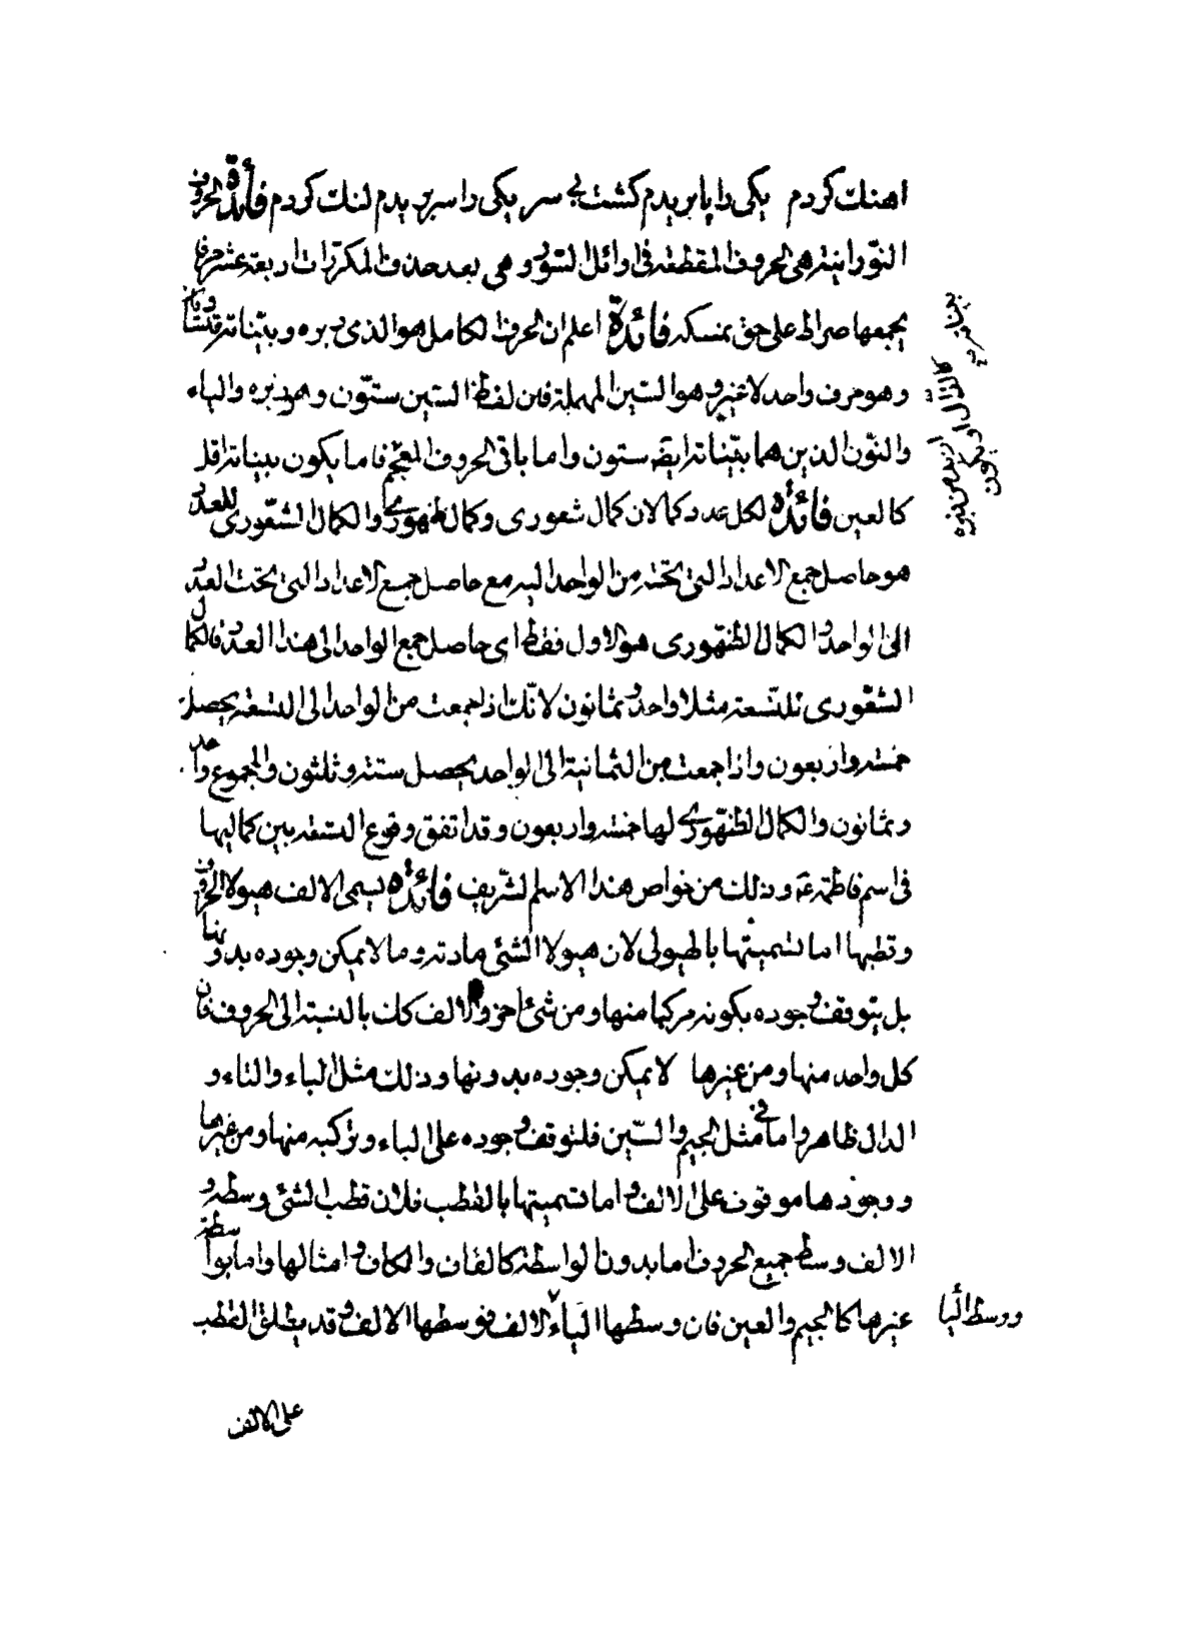 اهنك كردم يكى را پا بريدم كشت بى سر يكى را سر بريدم لنك كردم فائدة الحروف
النّورانيته هى الحروف المقطعه فى اوائل السّور وهى بعد حذف المكرّرات اربعة عشر حرفا
يجمعها صراط على حق نمسكه فائدة اعلم ان الحرف الكامل هو الذى زبره وبيّناته
وهو حرف واحد لا غير وهو السّين المهملة فان لفظ السّين ستّون وهو زبره والياء
والنّون الذين هما بيّناته ايضه ستون واما باقى الحروف المعجم فاما يكون بيناته اقل
كالعين فائدة لكل عدد كمالان كمال شعورى وكمال ظهورى والكمال الشّعورى للعدد
هو حاصل جمع الاعداد التى تحته من الواحد اليه مع حاصل جمع الاعداد التى تحت العدد
الى الواحد والكمال الظّهورى هو الاول فقط اى حاصل جمع الواحد الى هذا العدد فالكمال
الشّعورى للتّسعة مثلا واحد وثمانون لانّك اذا جمعت من الواحد الى التسعه يحصل
خمسه واربعون واذا جمعت من الثمانية الى الواحد يحصل ستته وثلثون والمجموع واحد
وثمانون والكمال الظّهورى لها خمسه واربعون وقد اتفق وقوع التسعه بين كماليها
فى اسم فاطمة ع وذلك من خواص هذا الاسم الشّريف فائدة يسمى الالف هيولا الحروف
وقطبها اما تسميتها بالهيولى لان هيولا الشئى مادته وما لا يمكن وجوده بدونها
بل يتوقف وجوده بكونه مركبا منها ومن شئ اخر والالف كك بالنسبته الى الحروف فان
كل واحد منها ومن غيرها لا يمكن وجوده بدونها وذلك مثل الباء والتاء و
الدال ظاهر واما فى مثل الجيم والسّين فلتوقف وجوده على الياء وتركبه منها ومن غيرها
ووجودها موقوف على الالف واما تسميتها بالقطب فلان قطب الشئى وسطه و
الالف وسط جميع الحروف اما بدون الواسطة كالقاف والكاف وامثالها واما بواسطة
غيرها كالجيم والعين فان وسطها الياء الالف فوسطها الالف وقد يطلق القطب
ووسط اليا
على الالف